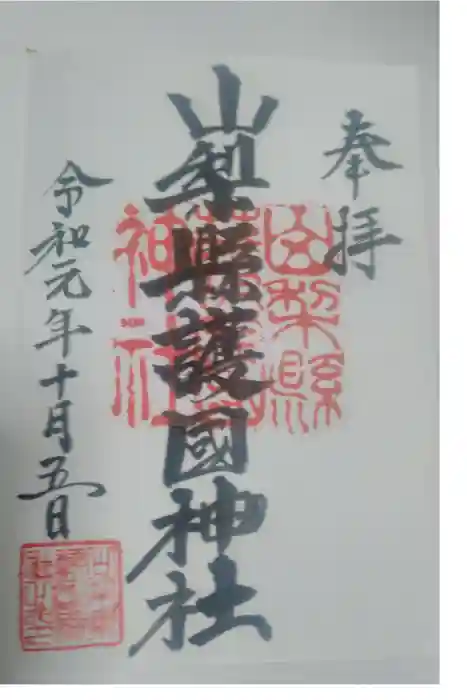 奉拝
山梨縣護國神社
令和元年十月五日
山梨縣
神社